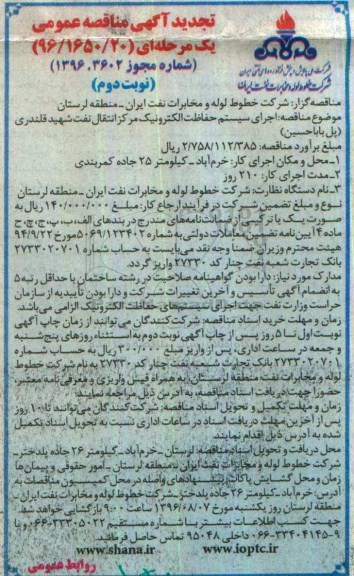 تجدید آگهی مناقصه عمومی
یک مرحله‌ای (۹۶/۱۶۵۰/۲۰)
(شماره مجوز ۱۳۹۶.۳۶۰۲)
(نوبت دوم)
شرکت ملی پالایش و پخش فرآورده‌های نفتی ایران
شرکت خطوط لوله و مخابرات نفت ایران
مناقصه گزار: شرکت خطوط لوله و مخابرات نفت ایران ـ منطقه لرستان
موضوع مناقصه: اجرای سیستم حفاظت الکترونیک مرکز انتقال نفت شهید قلندری
(پل باباحسین)
مبلغ برآورد مناقصه: ۲/۷۵۸/۱۱۲/۳۸۵ ریال
۱-محل و مکان اجرای کار: خرم‌آباد ـ کیلومتر ۲۵ جاده کمربندی
۲-مدت اجرای کار: ۲۱۰ روز
۳-نام دستگاه نظارت: شرکت خطوط لوله و مخابرات نفت ایران ـ منطقه لرستان
نوع و مبلغ تضمین شرکت در فرآیند ارجاع کار: مبلغ ۱۴۰/۰۰۰/۰۰۰ ریال به
صورت یک یا ترکیبی از ضمانت‌نامه‌های مندرج در بندهای الف، ب، پ، ج، چ، ح
ماده ۴ آیین نامه تضمین معاملات دولتی به شماره ۱۲۳۴۰۲/ت۵۰۶۵۹هـ مورخ ۹۴/۹/۲۲
هیئت محترم وزیران ضمنا وجه نقد می‌بایست به حساب شماره ۲۷۳۳۰۲۰۷۰۱
بانک تجارت شعبه نفت چنار کد ۲۷۳۳۰ واریز گردد.
مدارک مورد نیاز: دارا بودن گواهینامه صلاحیت در رشته ساختمان با حداقل رتبه ۵
به انضمام آگهی تأسیس و آخرین تغییرات شرکت و دارا بودن تأییدیه از سازمان
حراست وزارت نفت جهت اجرای سیستم‌های حفاظت الکترونیک الزامی می‌باشد.
زمان و مهلت خرید اسناد مناقصه: شرکت کنندگان می توانند از زمان چاپ آگهی
نوبت اول تا ۵ روز پس از چاپ آگهی نوبت دوم به استثناء روزهای پنج‌شنبه
و جمعه در ساعات اداری، پس از واریز مبلغ ۳۰۰/۰۰۰ ریال به حساب شماره
۲۷۳۳۰۲۰۷۰۱ بانک تجارت شعبه نفت چنار کد ۲۷۳۳۰ به نام شرکت خطوط
لوله و مخابرات نفت منطقه لرستان، به همراه فیش واریزی و معرفی نامه معتبر،
حضورا جهت دریافت اسناد مناقصه، به آدرس ذیل مراجعه نمایند.
زمان و مهلت تکمیل و تحویل اسناد مناقصه: شرکت کنندگان می‌توانند تا ۱۰ روز
پس از آخرین مهلت دریافت اسناد در ساعات اداری نسبت به تحویل اسناد تکمیل
شده به آدرس ذیل اقدام نمایند.
محل دریافت و تحویل اسناد مناقصه: لرستان ـ خرم‌آباد ـ کیلومتر ۲۶ جاده پلدختر ـ
شرکت خطوط لوله و مخابرات نفت ایران ـ منطقه لرستان ـ امور حقوقی و پیمان‌ها
زمان و محل گشایش پاکات: پیشنهادهای واصله در محل کمیسیون مناقصات به
آدرس: خرم‌آباد ـ کیلومتر ۲۶ جاده پلدختر ـ شرکت خطوط لوله و مخابرات نفت ایران ـ
منطقه لرستان روز یکشنبه مورخ ۱۳۹۶/۰۸/۰۷ ساعت ۹:۰۰ بازگشایی خواهد شد.
جهت کسب اطلاعات بیشتر با شماره مستقیم ۳۳۳۰۵۰۲۲-۰۶۶ و یا
۹-۳۳۴۰۴۱۴۵-۰۶۶ داخلی ۹۵۰۴۸ تماس حاصل فرمائید.
www.shana.ir www.ioptc.ir
روابط عمومی